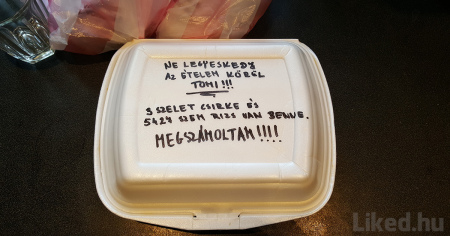 NE LEGYESKEDJ
AZ ÉTELEM KÖRÜL
TOMI!!!
3 SZELET CSIRKE ÉS
5424 SZEM RIZS VAN BENNE.
MEGSZÁMOLTAM!!!!
Liked.hu